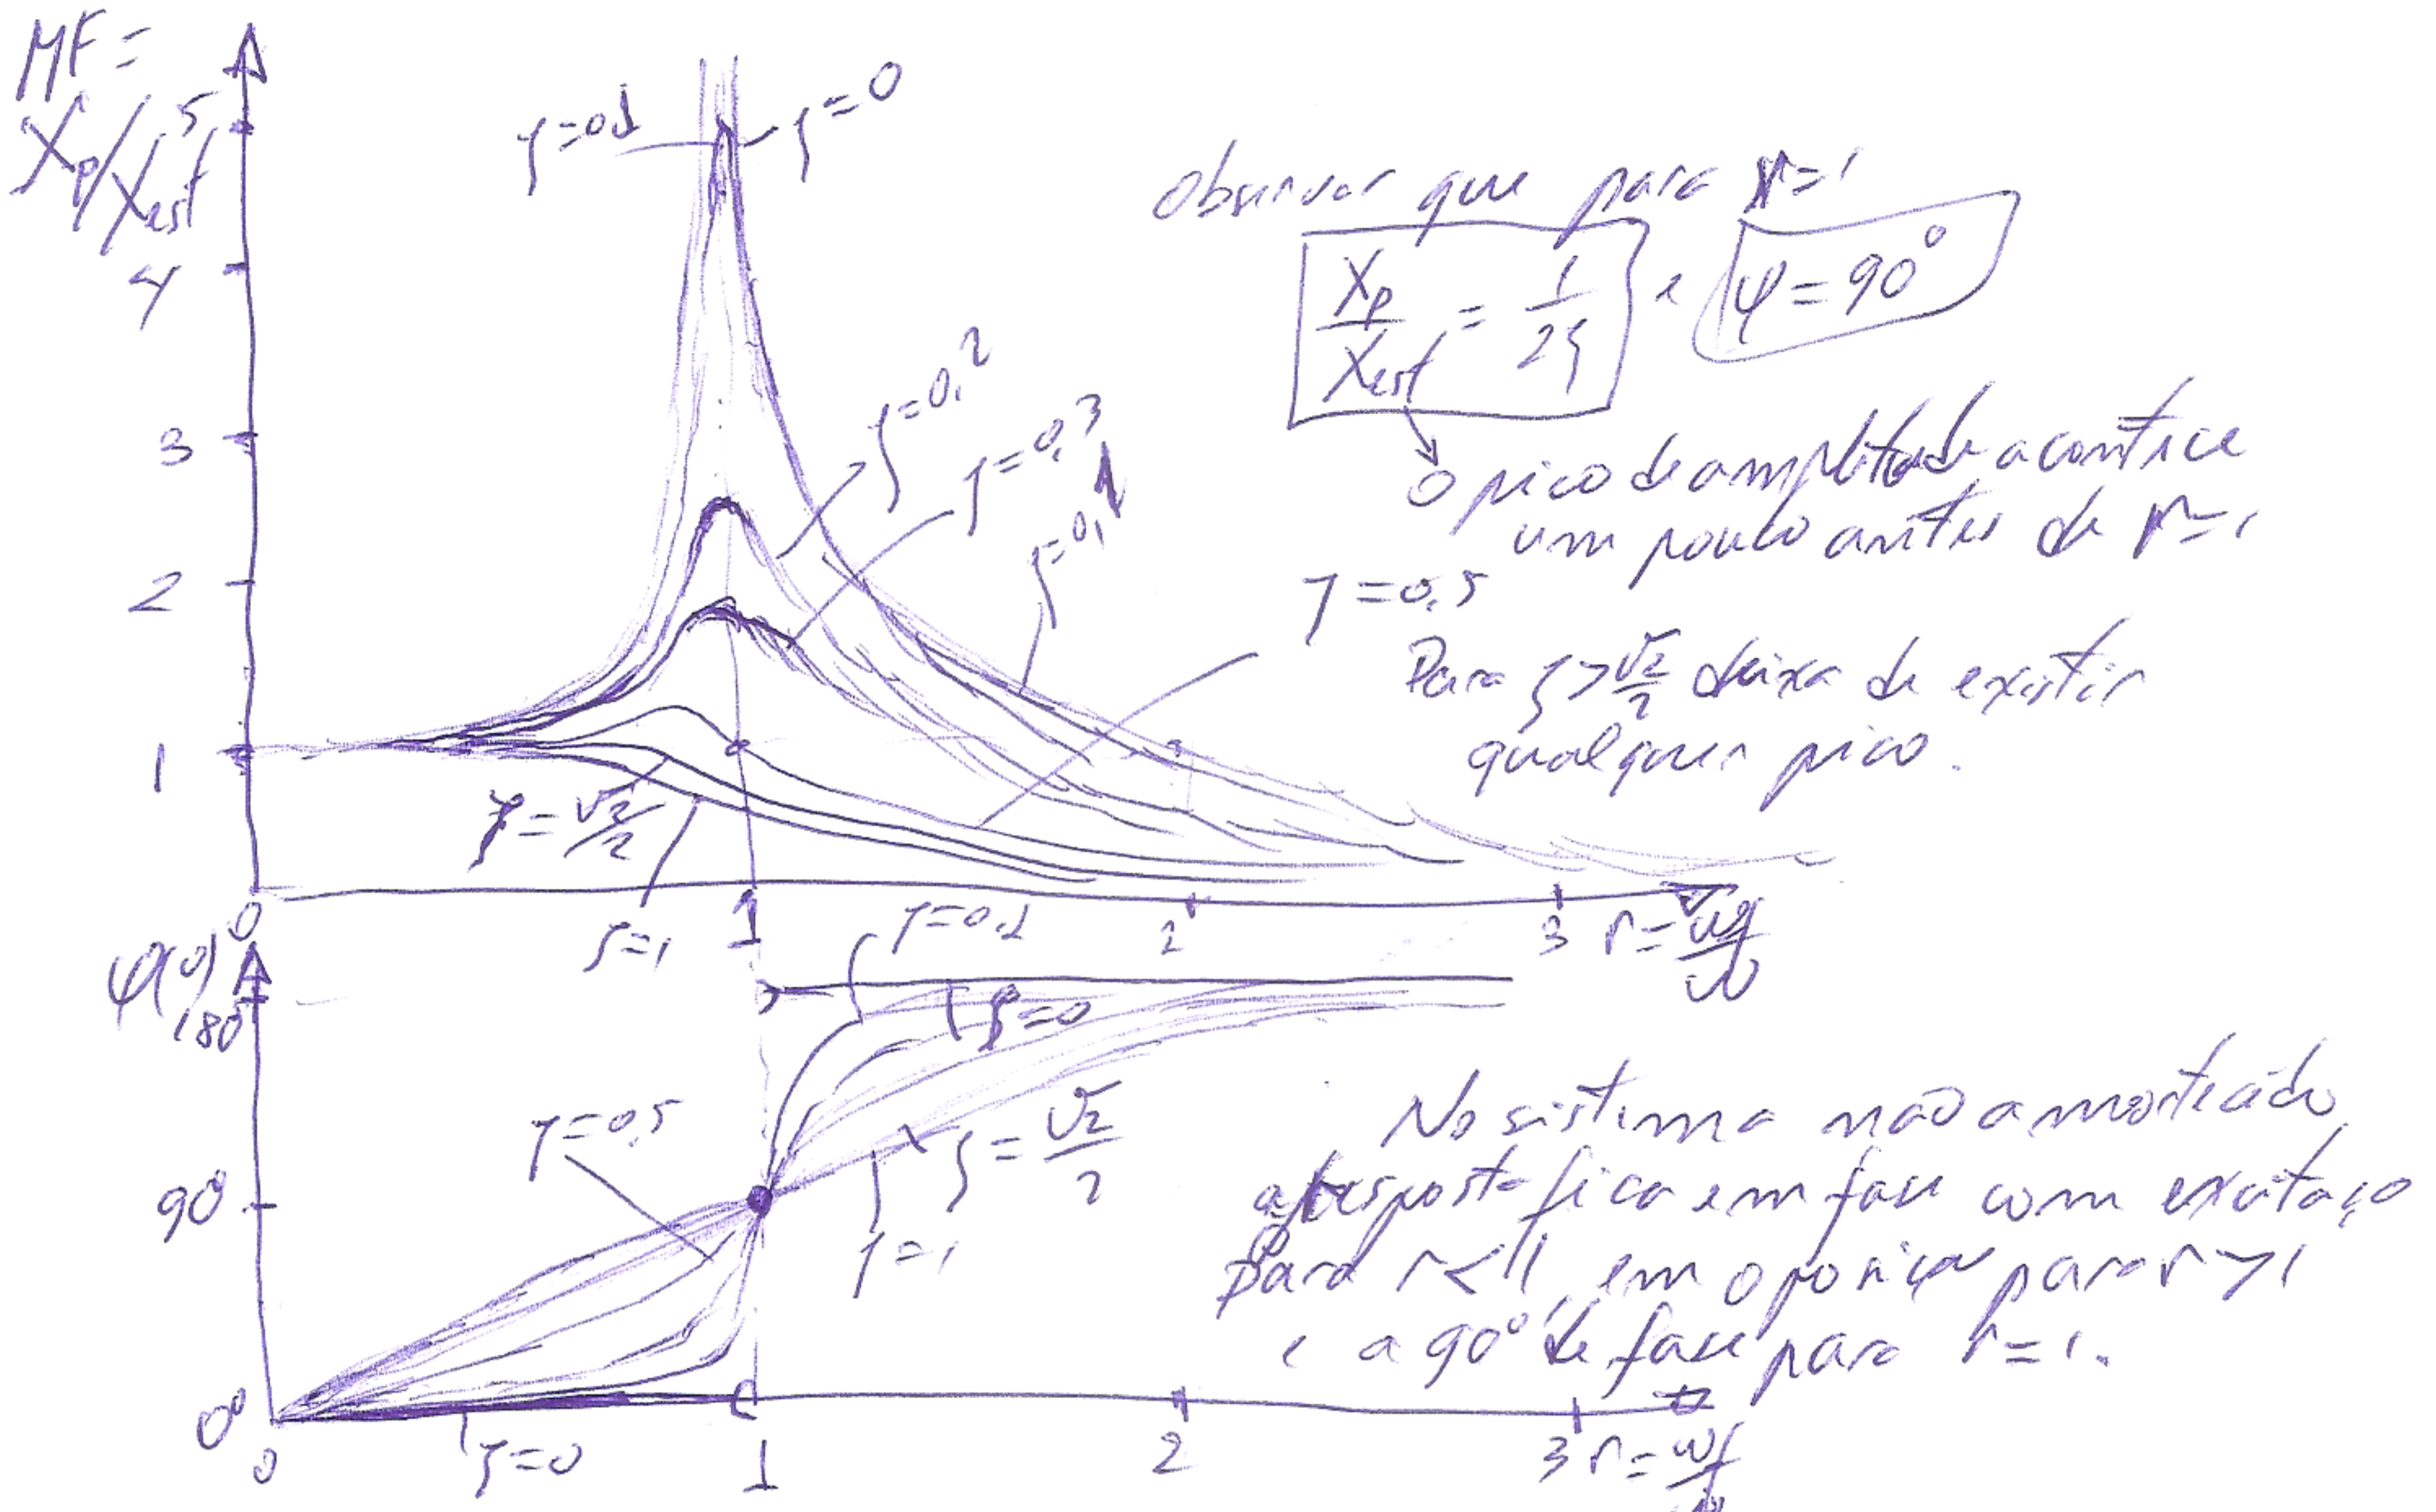 MF =
Xp/Xest
5
4
3
2
1
0
ζ=0.1
ζ=0
ζ=0.2
ζ=0.3
ζ=0.1
ζ=0.5
ζ=√2/2
ζ=1
1
2
3
r=ωf/ω
observar que para r=1
Xp/Xest = 1/2ζ e ψ=90°
o pico de amplitude acontece
um pouco antes de r=1
Para ζ>√2/2 deixa de existir
qualquer pico.
ψ(°)
180
90°
0°
ζ=0.1
ζ=0
ζ=0.5
ζ=√2/2
ζ=1
ζ=0
0
1
2
3
r=ωf/ω
No sistema não amortecido
a resposta fica em fase com excitação
para r<1, em oposição para r>1
e a 90° de fase para r=1.